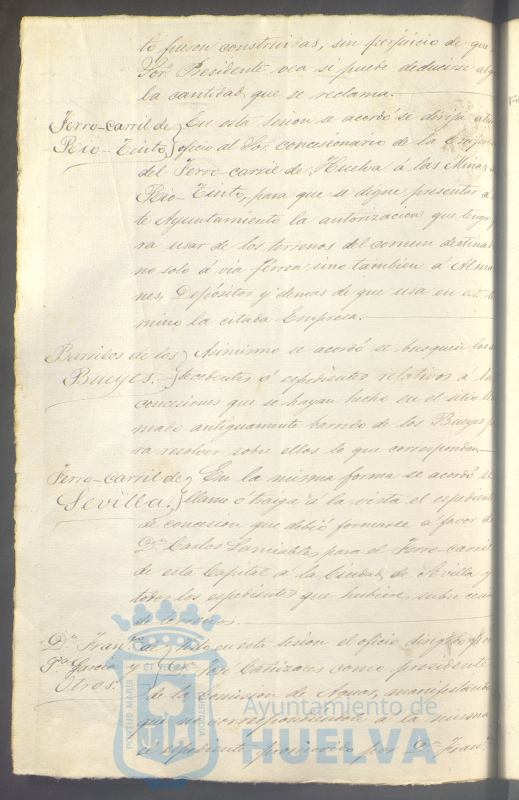 to fueron construidas, sin perjuicio de que
Sor. Presidente vea si puede deducirse alg
la cantidad que se reclama.
Ferro-carril de Rio-Tinto
En esta sesion se acordó se dirija aten
oficio al Sor. concesionario de la
del Ferro-carril de Huelva á las Minas
Rio-Tinto, para que se digne presentar á
te Ayuntamiento la autorizacion que tenga
ra usar de los terrenos del comun destina
no solo á via férrea sino tambien á Alma
nes, Depósitos y demas de que usa en este
mino la citada Empresa.
Barridos de los Bueyes.
Asimismo se acordó se busquen los
ó espedientes relativos á la
concesiones que se hayan hecho en el sitio lla
mado antiguamente barrido de los Bueyes p
ra resolver sobre ellos lo que corresponda
Ferro-carril de Sevilla.
En la misma forma se acordó se
llame ó traiga á la vista el espediente
de concesion que debió formarse á favor de
Dn. Carlos para el Ferro-carril
de esta Capital á la Ciudad de Sevilla y
todos los espedientes que hubiere sobre
de terrenos.
Dn. Fran.co García y Otros.
en esta sesion el oficio dirigido por
Dn. José como presidente
de la Comision de Aguas, manifestando
que no correspondiendole á la misma
el espediente promovido por Dn. Fran.
PORTUS MARIS ET TERRAE CUSTODIA
Ayuntamiento de
HUELVA